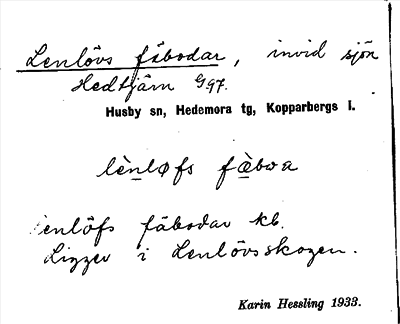 Lenlövs fäbodar, invid sjön
Hedtjärn G97.
Husby sn, Hedemora tg, Kopparbergs l.
lènløfs fæ̀bωa
enlöfs fäbodar kb.
Ligger i Lenlövsskogen.
Karin Hessling 1933.